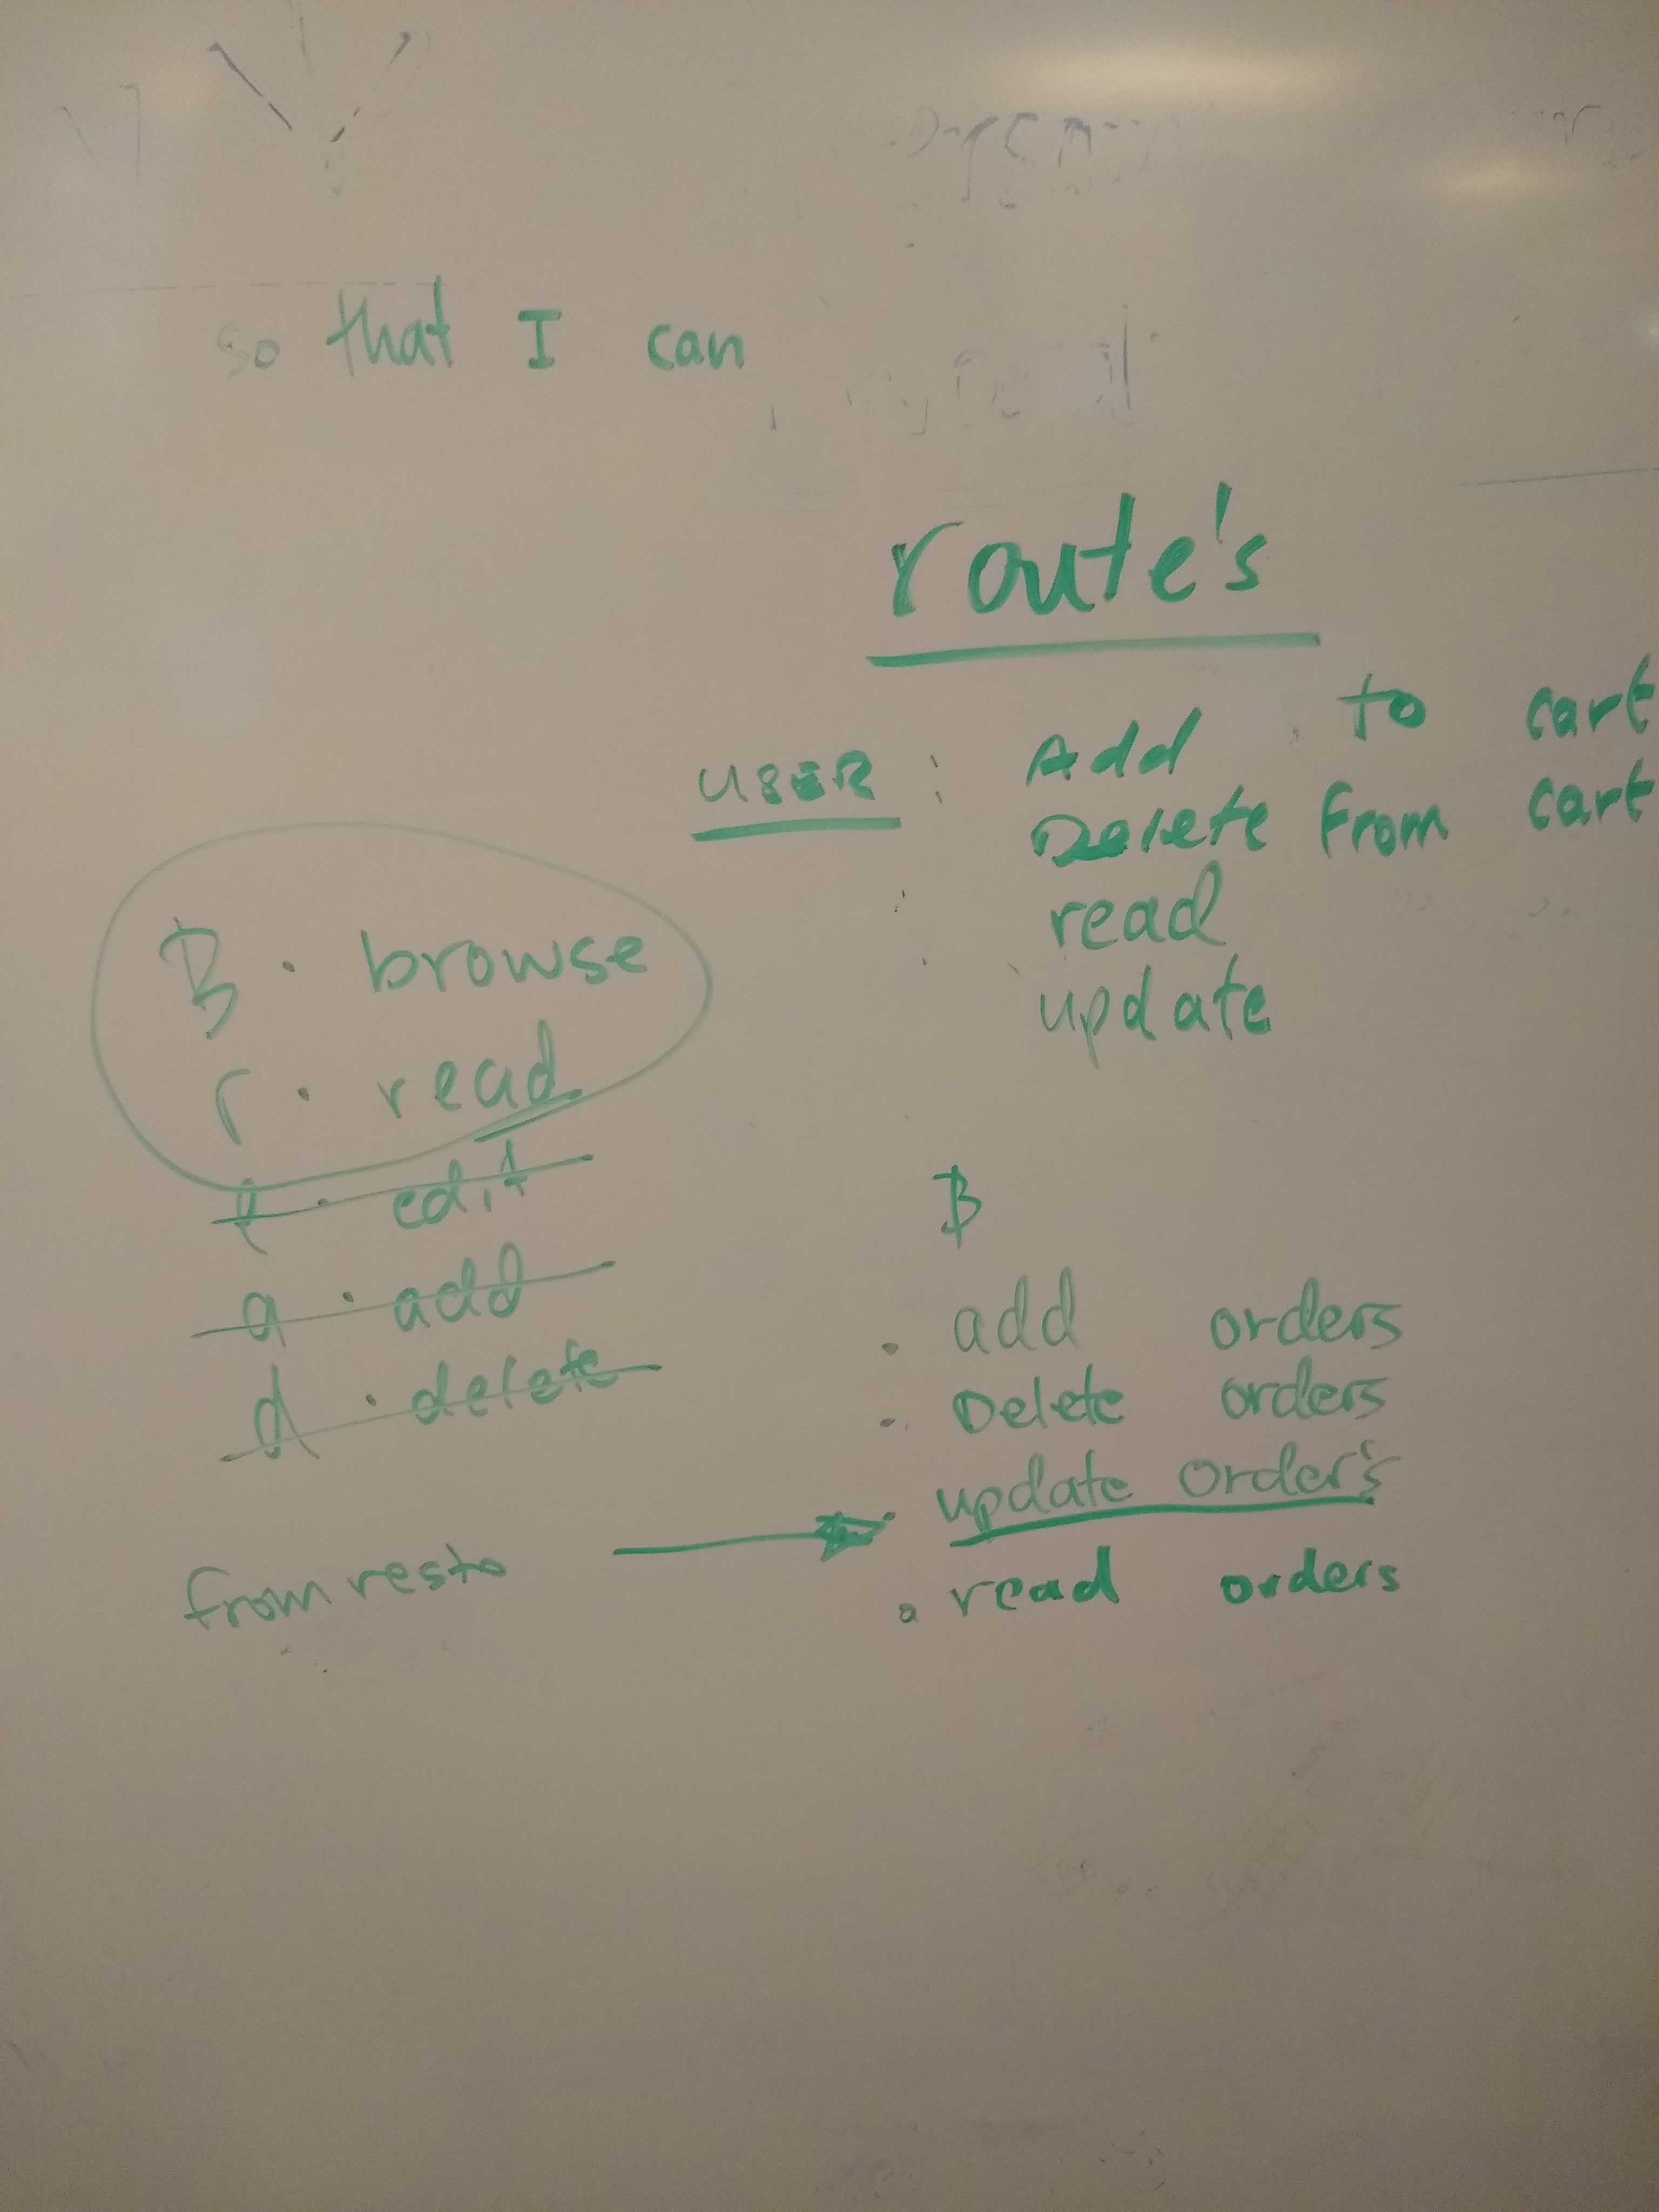 so that I can
route's
USER : Add to cart
Delete from cart
read
update
B . browse
r . read
e . edit
a . add
d . delete
B
. add orders
. Delete orders
. update order's
. read orders
from resto